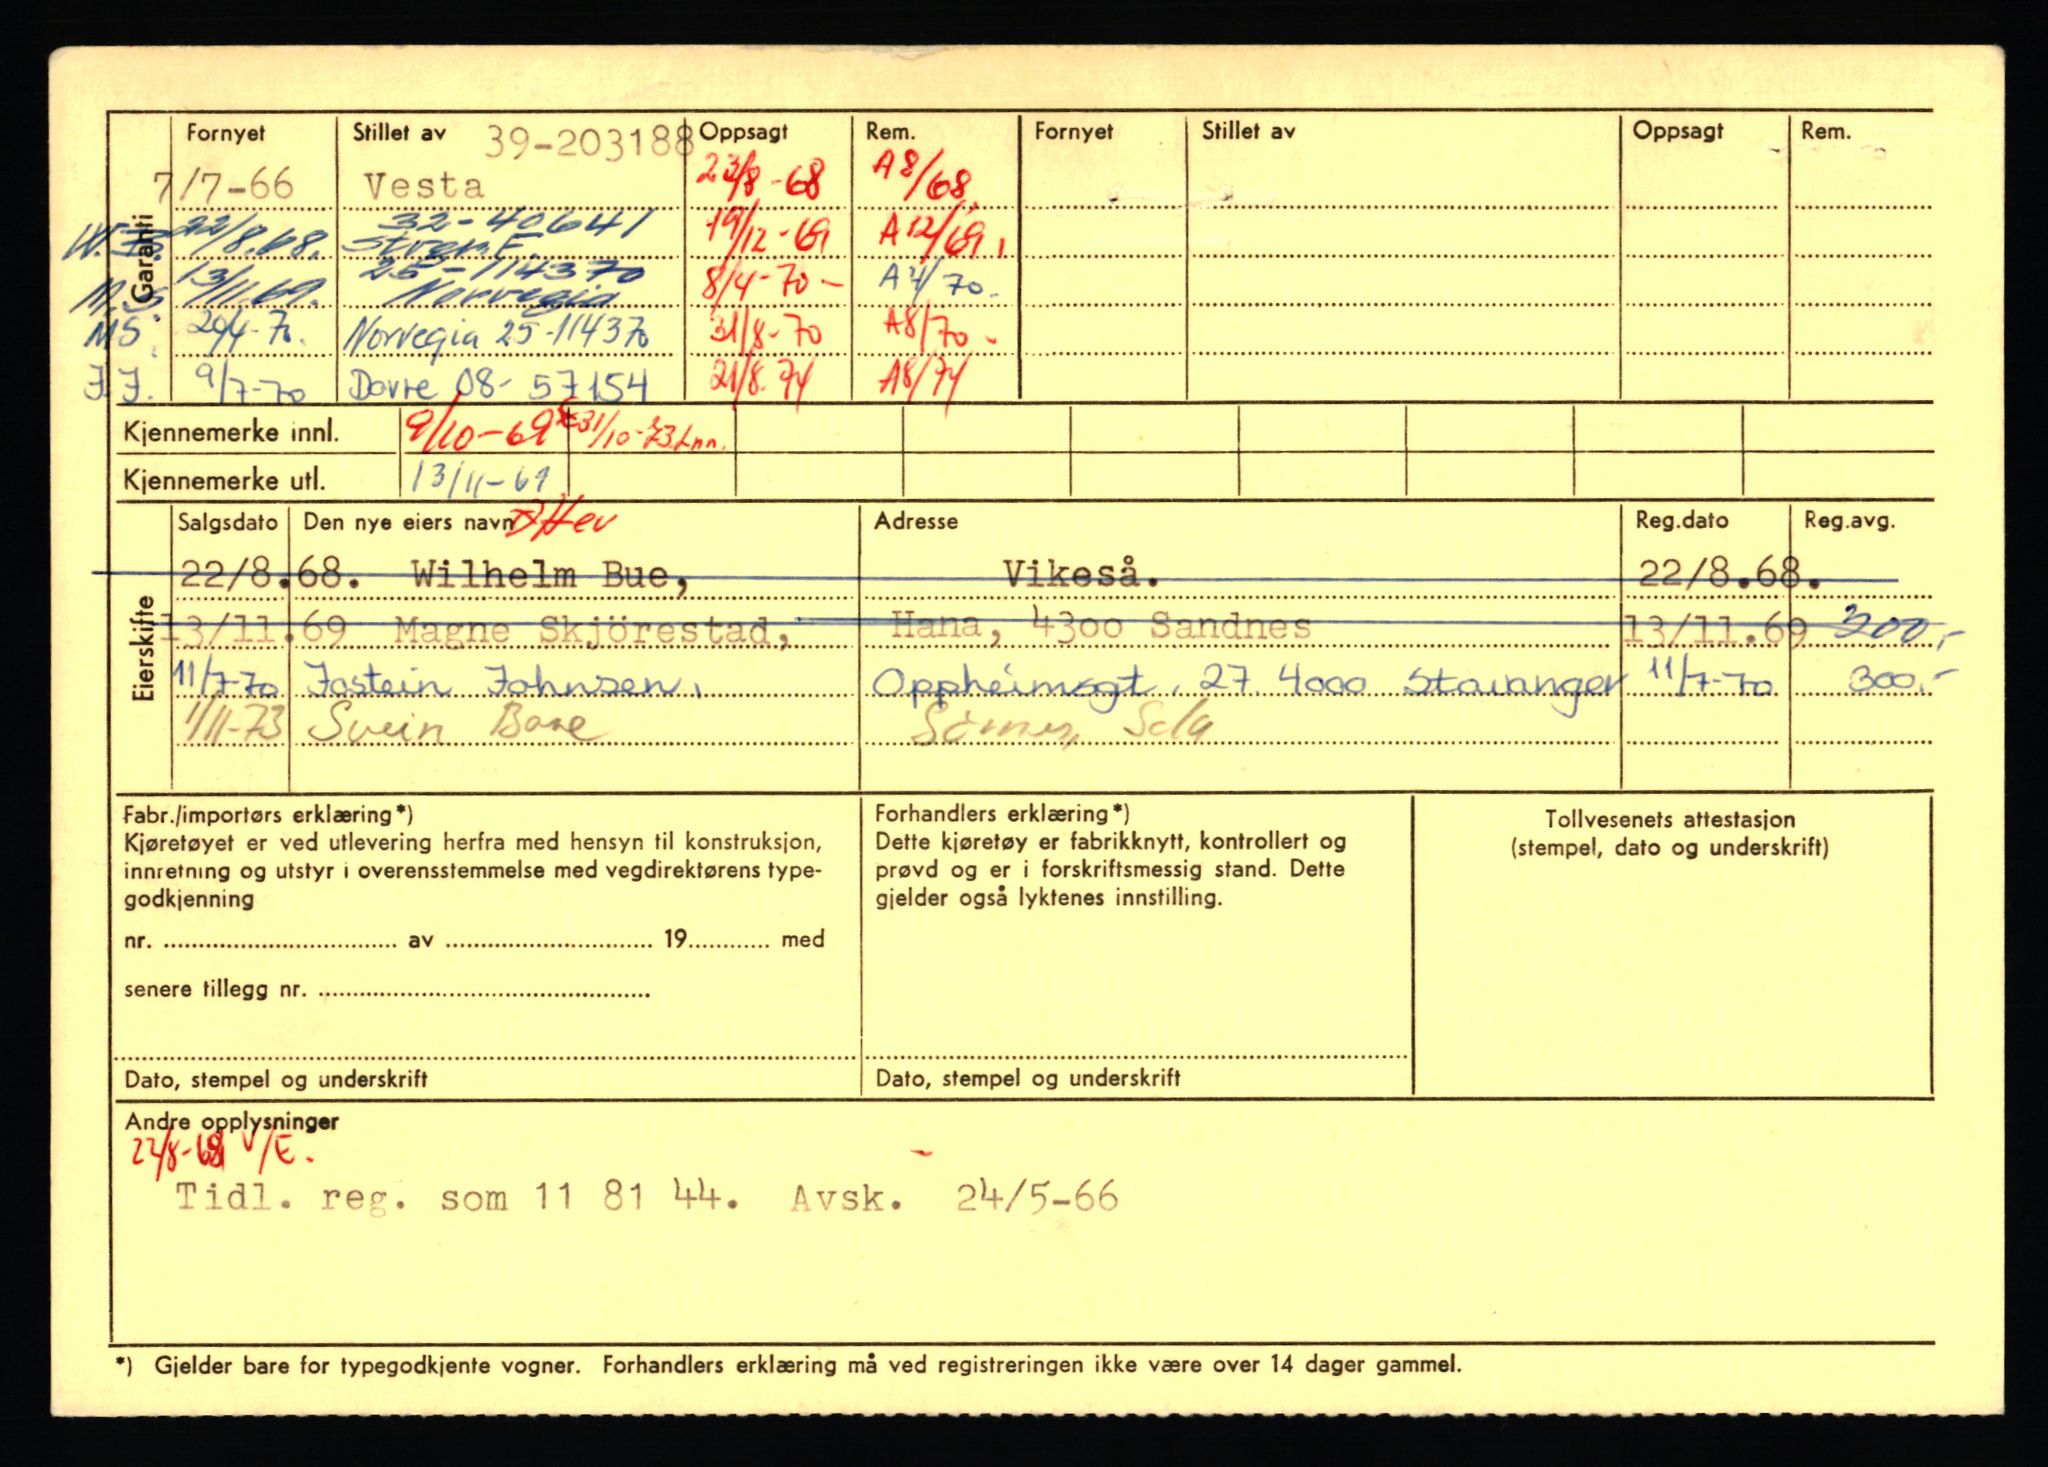 Fornyet Stillet av 39-203188 Oppsagt Rem. Fornyet Stillet av Oppsagt Rem.
Garanti
7/7-66 Vesta 23/8-68 A8/68
22/8.68. 32-40641 19/12-69 A12/69
13/11.69. 25-114370 Norvegia 8/4-70 - A4/70-
MS. 20/4-70. Norvegia 25-114370 31/8-70 A8/70-
J.J. 9/7-70 Dovre 08-57154 21/8.74 A8/74
Kjennemerke innl. 9/10-69 31/10-73 Inn.
Kjennemerke utl. 13/11-69
Eierskifte
Salgsdato Den nye eiers navn Adresse Reg.dato Reg.avg.
22/8.68. Wilhelm Bue, Vikeså. 22/8.68.
13/11.69 Magne Skjörestad, Hana, 4300 Sandnes 13/11.69 300,-
11/7-70 Jostein Johnsen. Oppheimsgt. 27. 4000 Stavanger 11/7-70 300,-
1/11-73 Svein Bore Sømme, Sola
Fabr./importørs erklæring*)
Kjøretøyet er ved utlevering herfra med hensyn til konstruksjon,
innretning og utstyr i overensstemmelse med vegdirektørens type-
godkjenning
nr. ........ av ........ 19........ med
senere tillegg nr. ........
Dato, stempel og underskrift
Forhandlers erklæring*)
Dette kjøretøy er fabrikknytt, kontrollert og
prøvd og er i forskriftsmessig stand. Dette
gjelder også lyktenes innstilling.
Dato, stempel og underskrift
Tollvesenets attestasjon
(stempel, dato og underskrift)
Andre opplysninger
22/8-68 V/E.
Tidl. reg. som 11 81 44. Avsk. 24/5-66
*) Gjelder bare for typegodkjente vogner. Forhandlers erklæring må ved registreringen ikke være over 14 dager gammel.